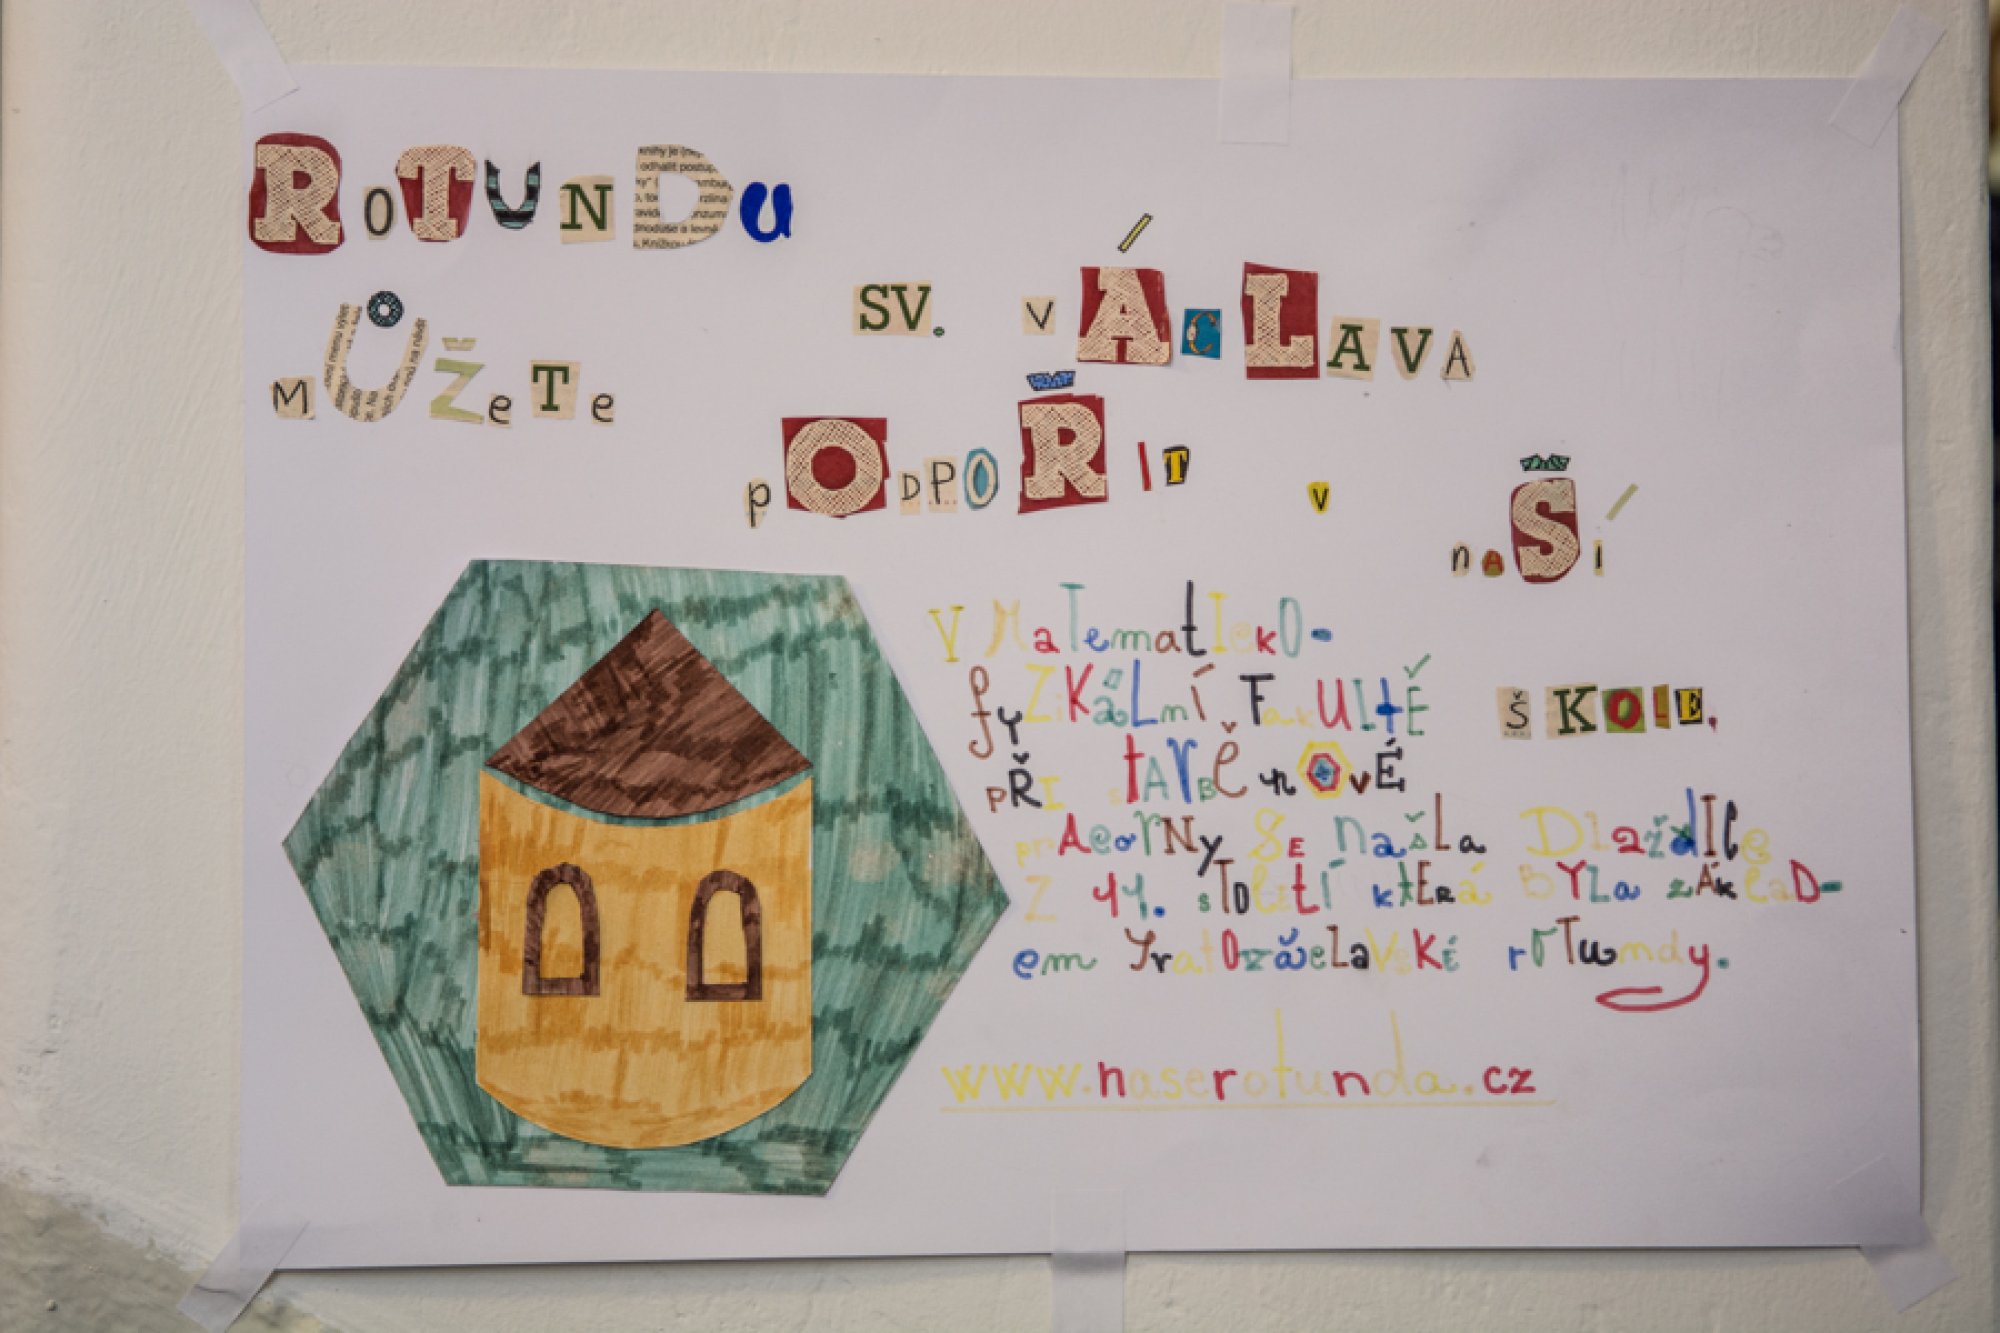 ROTUNDU
SV. VÁCLAVA
MŮŽETE
PODPOŘIT V
NAŠÍ
ŠKOLE.
V Matematicko-
fyzikální Fakultě
při stavbě nové
pracorny se našla Dlaždice
z 11. století která byla základ-
em Svatováclavské rotundy.
www.naserotunda.cz